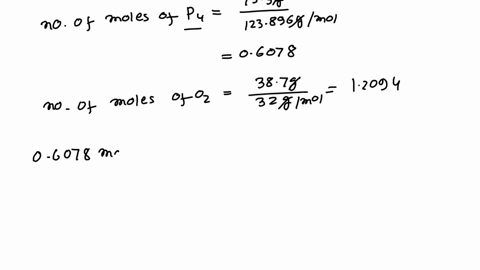 no. of moles of P4 = 75.3g / 123.896g/mol
= 0.6078
no. of moles of O2 = 38.7g / 32g/mol = 1.2094
0.6078 m